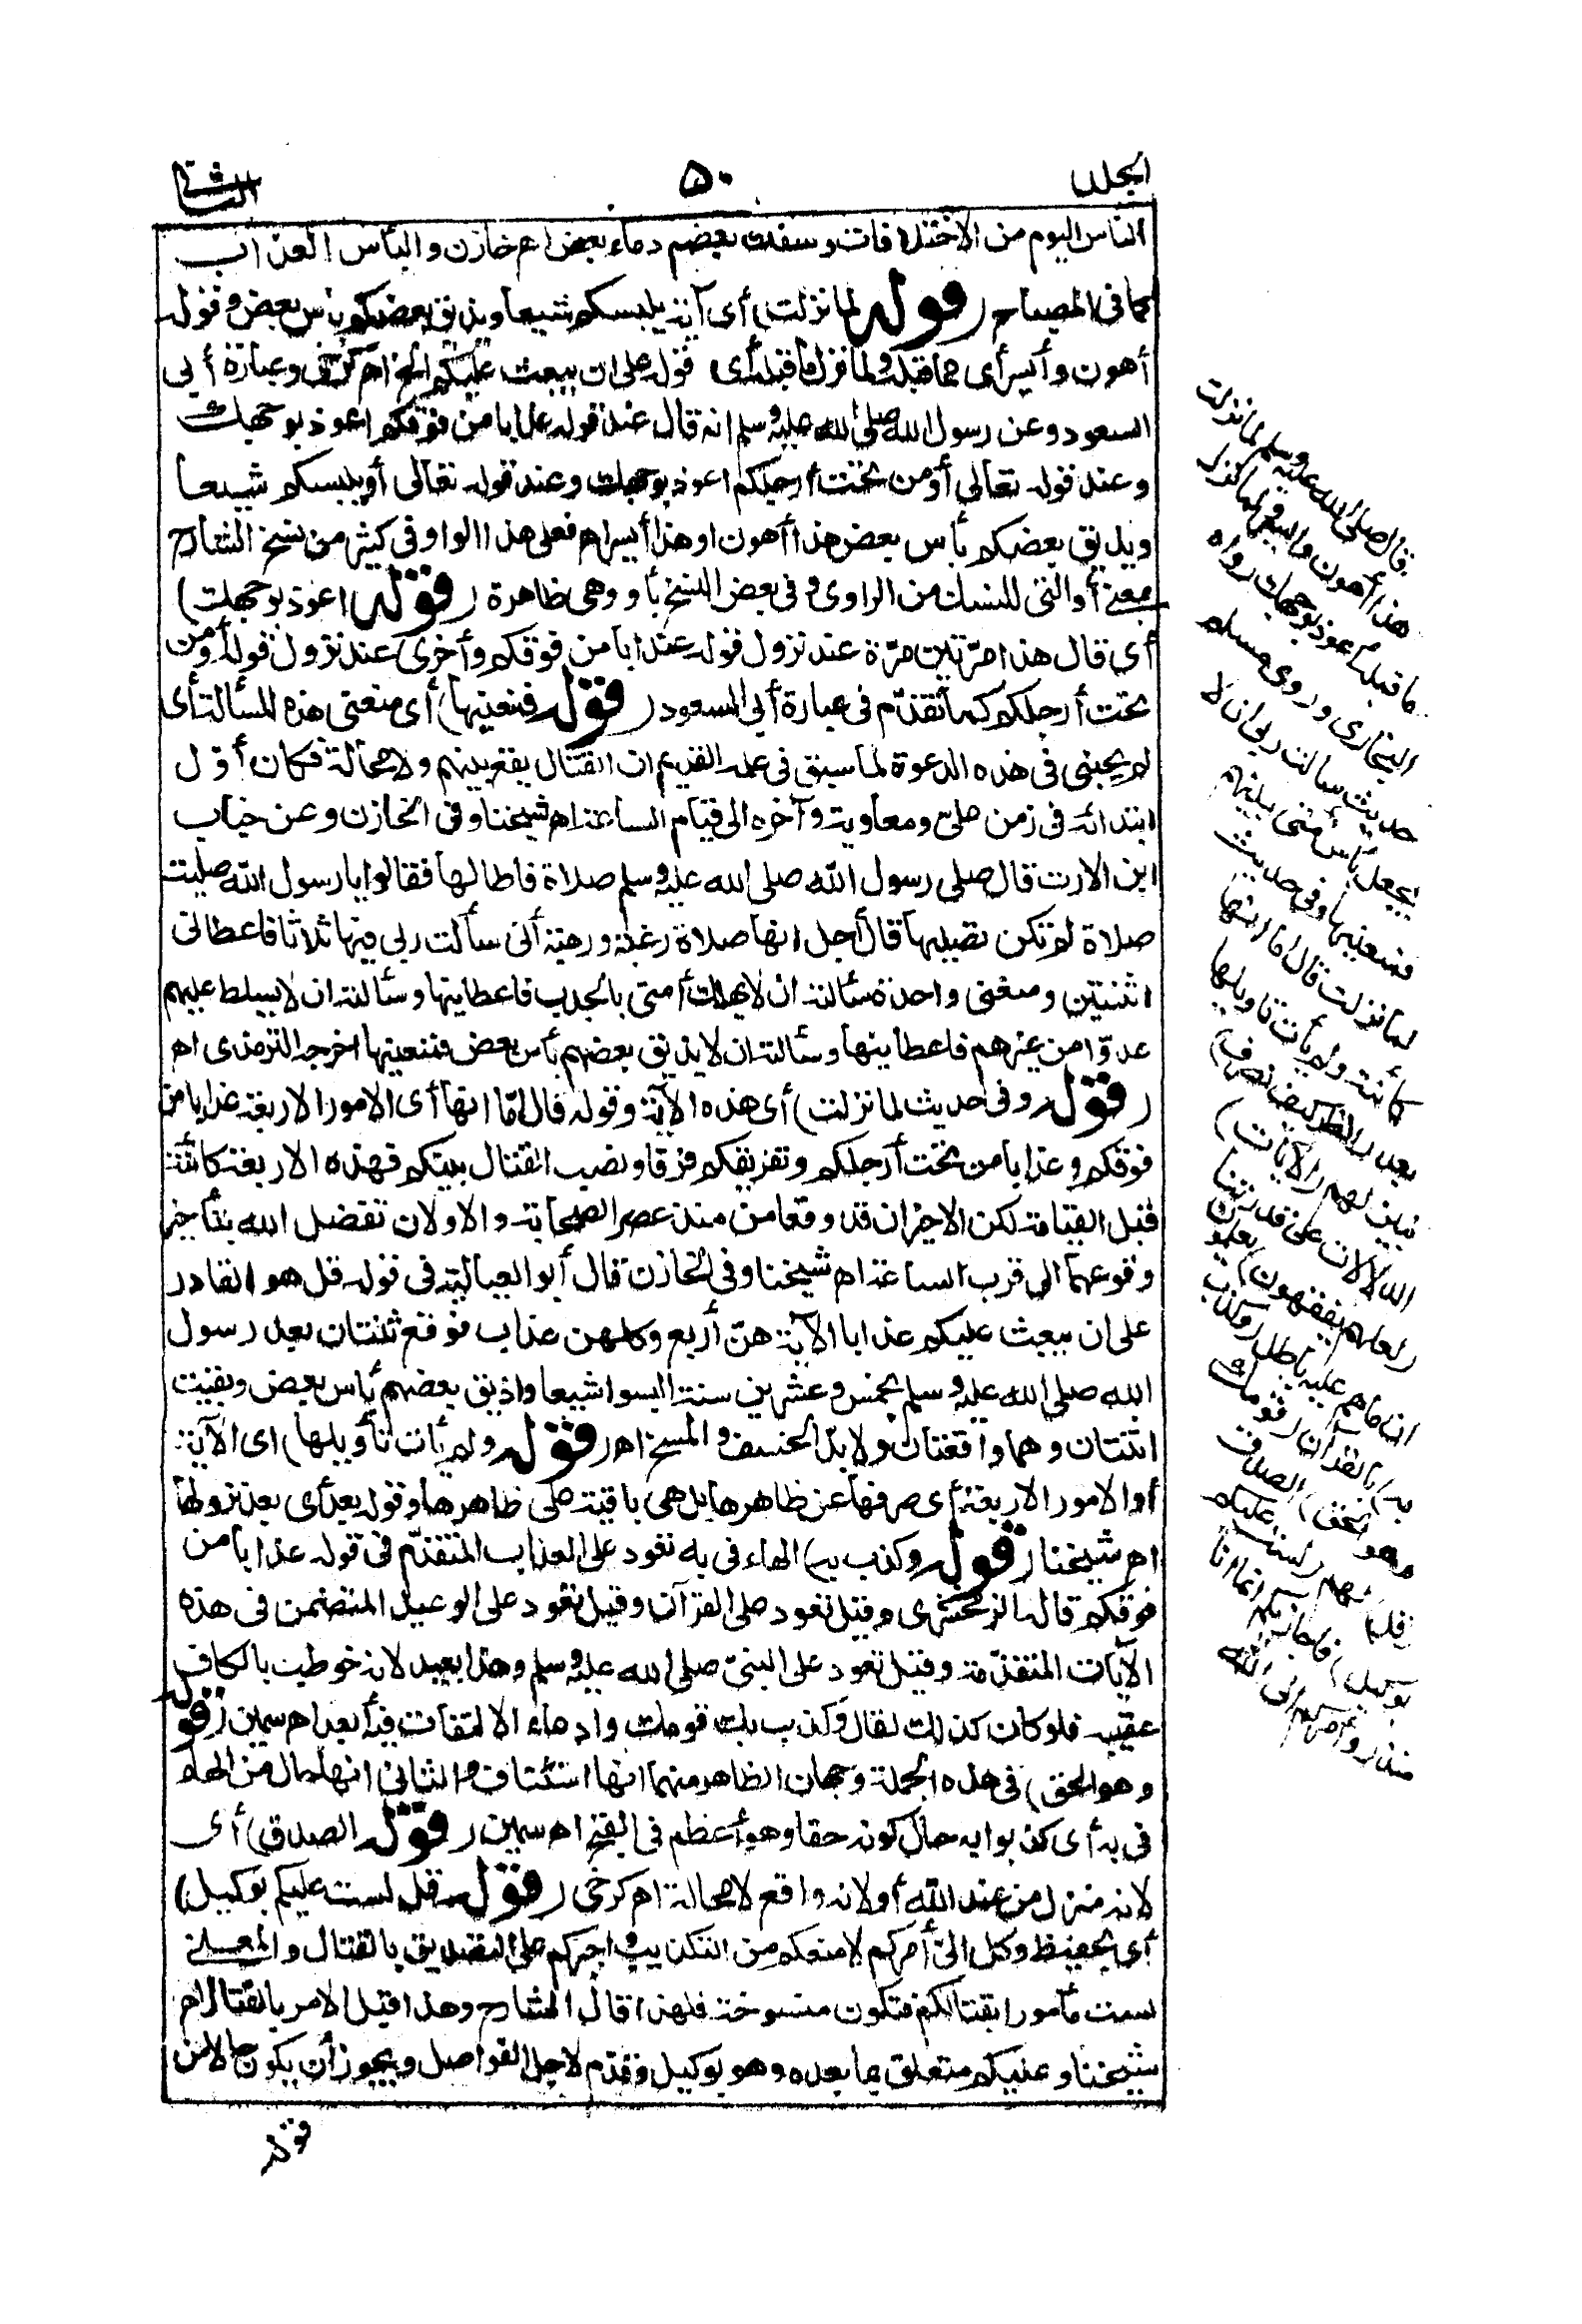 الجلد
٥٠
الثانى
الناس اليوم من الاختلافات وسفك بعضهم دماء بعض اه خازن والبأس العذاب
كما فى المصباح (قوله لما نزلت) أى آية يلبسكم شيعا ويذيق بعضكم بأس بعض وقوله
أهون وأيسر أى مما قبله ولما نزل ما قبله أى قوله على ان يبعث عليكم الخ اه كرخى وعبارة أبى
السعود وعن رسول الله صلى الله عليه وسلم انه قال عند قوله عذابا من فوقكم اعوذ بوجهك
وعند قوله تعالى أو من تحت أرجلكم اعوذ بوجهك وعند قوله تعالى أو يلبسكم شيعا
ويذيق بعضكم بأس بعض هذا أهون او هذا أيسر اه فعلى هذا الواو فى كثير من نسخ الشارح
بمعنى أو التى للشك من الراوى وفى بعض النسخ بأو وهى ظاهرة (قوله اعوذ بوجهك)
أى قال هذا مرّتين مرّة عند نزول قوله عذابا من فوقكم وأخرى عند نزول قوله أو من
تحت أرجلكم كما تقدّم فى عبارة أبى السعود (قوله فمنعنيها) أى منعنى هذه المسألة أى
لم يجبنى فى هذه الدعوة لما سبق فى علمه القديم ان القتال يقع بينهم ولا محالة فكان أوّل
ابتدائه فى زمن على ومعاوية وآخره الى قيام الساعة اه شيخنا وفى الخازن وعن خباب
ابن الارت قال صلى رسول الله صلى الله عليه وسلم صلاة فأطالها فقالوا يا رسول الله صليت
صلاة لم تكن تصليها قال أجل انها صلاة رغبة ورهبة أنى سألت ربى فيها ثلاثا فاعطانى
اثنتين ومنعنى واحدة سألته ان لا يهلك أمتى بالجدب فاعطانيها وسألته ان لا يسلط عليهم
عدوّا من غيرهم فاعطانيها وسألته ان لا يذيق بعضهم بأس بعض فمنعنيها اخرجه الترمذى اه
(قوله وفى حديث لما نزلت) أى هذه الآية وقوله قال أمّا انها أى الامور الاربعة عذابا من
فوقكم وعذابا من تحت أرجلكم وتفريقكم فرقا ونصب القتال بينكم فهذه الاربعة كائنة
قبل القيامة لكن الاخيران قد وقعا من منذ عصر الصحابة والاولان تفضل الله بتأخير
وقوعهما الى قرب الساعة اه شيخنا وفى الخازن قال أبو العالية فى قوله قل هو القادر
على ان يبعث عليكم عذابا الآية هنّ أربع وكلهن عذاب فوقع ثنتان بعد رسول
الله صلى الله عليه وسلم بخمس وعشرين سنة البسوا شيعا واذيق بعضهم بأس بعض وبقيت
اثنتان وهما واقعتان ولا بدّ الخسف والمسخ اه (قوله ولم يأت تأويلها) اى الآية
أو الامور الاربعة أى صرفها عن ظاهرها بل هى باقية على ظاهرها وقوله بعد أى بعد نزولها
اه شيخنا (قوله وكذب به) الهاء فى به تعود على العذاب المتقدّم فى قوله عذابا من
فوقكم قاله الزمخشرى وقيل تعود على القرآن وقيل تعود على الوعيد المتضمن فى هذه
الآيات المتقدّمة وقيل تعود على النبىّ صلى الله عليه وسلم وهذا بعيد لانه خوطب بالكاف
عقيبه فلو كان كذلك لقال وكذب بك قومك وادعاء الالتفات فيه أبعد اه سمين (قوله
وهو الحق) فى هذه الجملة وجهان الظاهر منهما انها استئناف والثانى انها حال من الهاء
فى به أى كذبوا به حال كونه حقا وهو أعظم فى القبح اه سمين (قوله الصدق) أى
لانه منزل من عند الله أو لانه واقع لا محالة اه كرخى (قوله قل لست عليكم بوكيل)
أى بحفيظ وكل الىّ أمركم لأمنعكم من التكذيب واجبركم على التصديق بالقتال والمعنى
لست مأمورا بقتالكم فتكون منسوخة فلهذا قال الشارح وهذا قبل الامر بالقتال اه
شيخنا وعليكم متعلق بما بعده وهو بوكيل وقدّم لاجل الفواصل ويجوز أن يكون حالا من
قوله
قال صلى الله عليه وسلم لما نزلت
هذا أهون وأيسر ولما نزل
ما قبله أعوذ بوجهك رواه
البخارى وروى مسلم
حديث سألت ربى ان لا
يجعل بأس أمتى بينهم
فمنعنيها وفى حديث
لما نزلت قال أما انها
كائنة ولم يأت تأويلها
بعد (انظر كيف نصرف)
نبين لهم (الآيات)
الدالات على قدرتنا
(لعلهم يفقهون) يعلمون
ان ما هم عليه باطل (وكذب
به) بالقرآن (قومك
وهو الحق) الصدق
(قل) لهم (لست عليكم
بوكيل) فأجازيكم انما أنا
منذر وأمركم الى الله